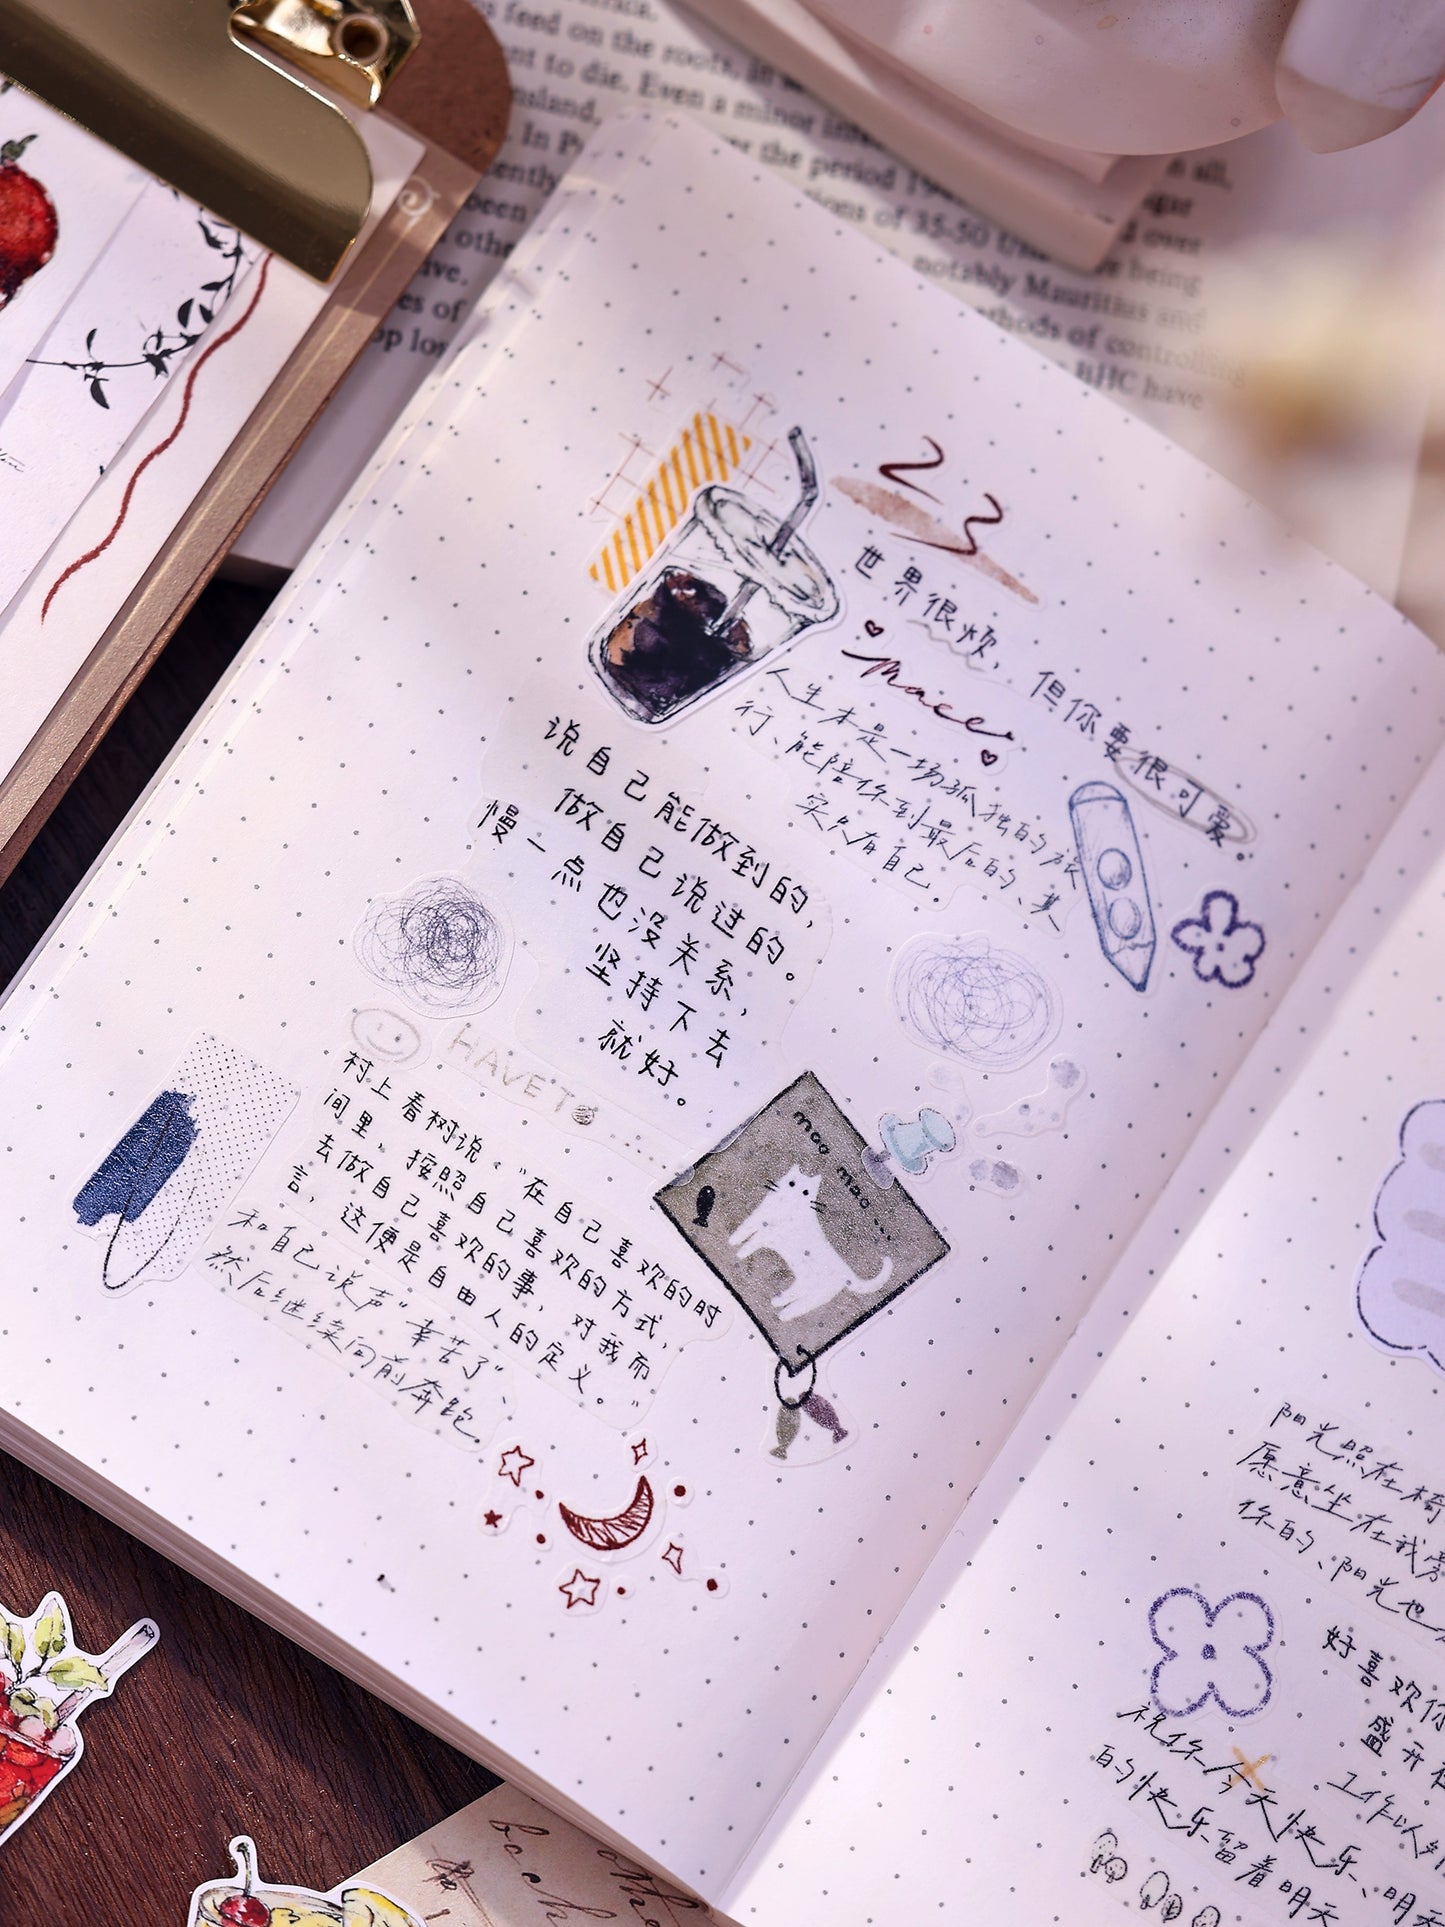 feed on the roots, in
to die. Even a minor
In
the period
of 35-50
being
notably Mauritius and
methods of controlling
BHC have
23
世界很烦，但你要很可爱。
mace
人生本是一场孤独的旅
行、能陪你到最后的、其
实只有自己。
说自己能做到的，
做自己说过的。
慢一点也没关系，
坚持下去
就好。
HAVE TO
村上春树说。“在自己喜欢的时
间里，按照自己喜欢的方式，
去做自己喜欢的事，对我而
言，这便是自由人的定义。”
和自己说声“辛苦了”、
然后继续向前奔跑。
mao mao
阳光照在椅
愿意坐在我旁
你的、阳光也
好喜欢你
盛开在
工作以外
祝你今天快乐、明天
的快乐留着明天